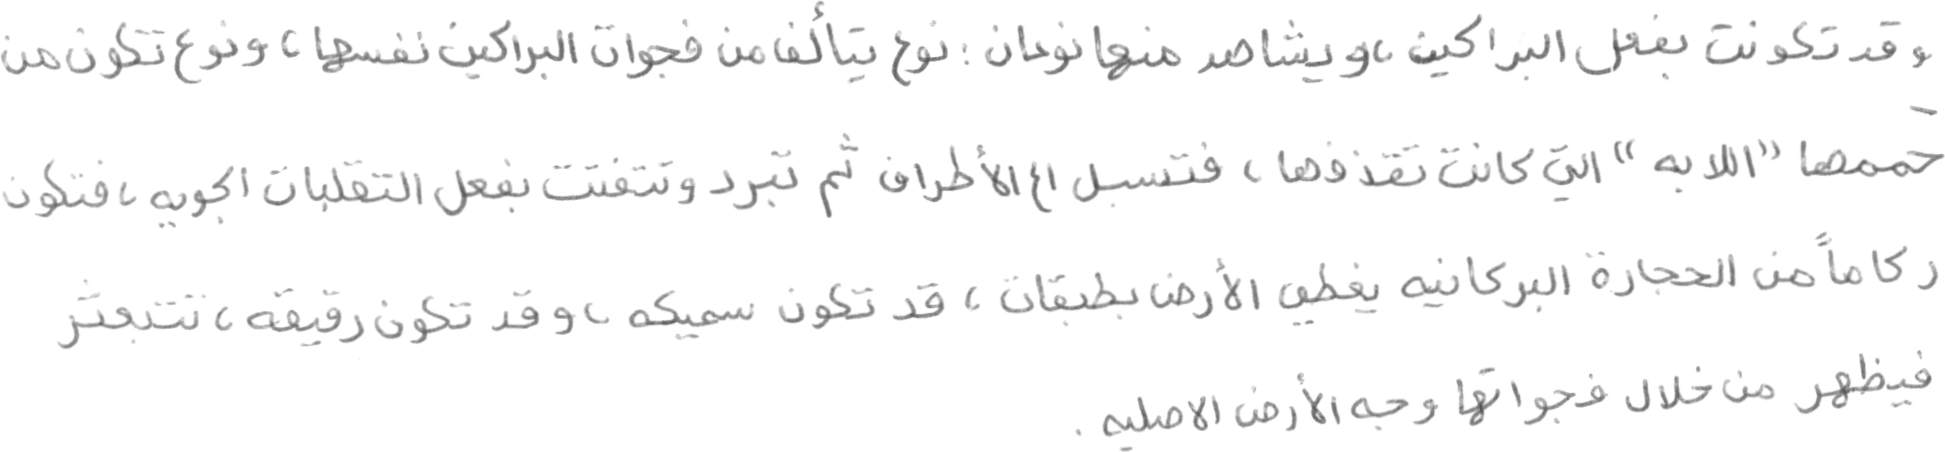 وقد تكونت بفعل البراكين ، ويشاهد منها نوعان : نوع يتألف من فجوات البراكين نفسها ، ونوع تتكون من
حممها "اللابه" التي كانت تقذفها ، فتسيل الى الأطراف ثم تبرد وتتفتت بفعل التقلبات الجويه ، فتكون
ركاماً من الحجارة البركانيه يغطي الأرض بطبقات ، قد تكون سميكه ، وقد تكون رقيقه ، تتبعثر
فيظهر من خلال فجواتها وجه الأرض الاصليه .